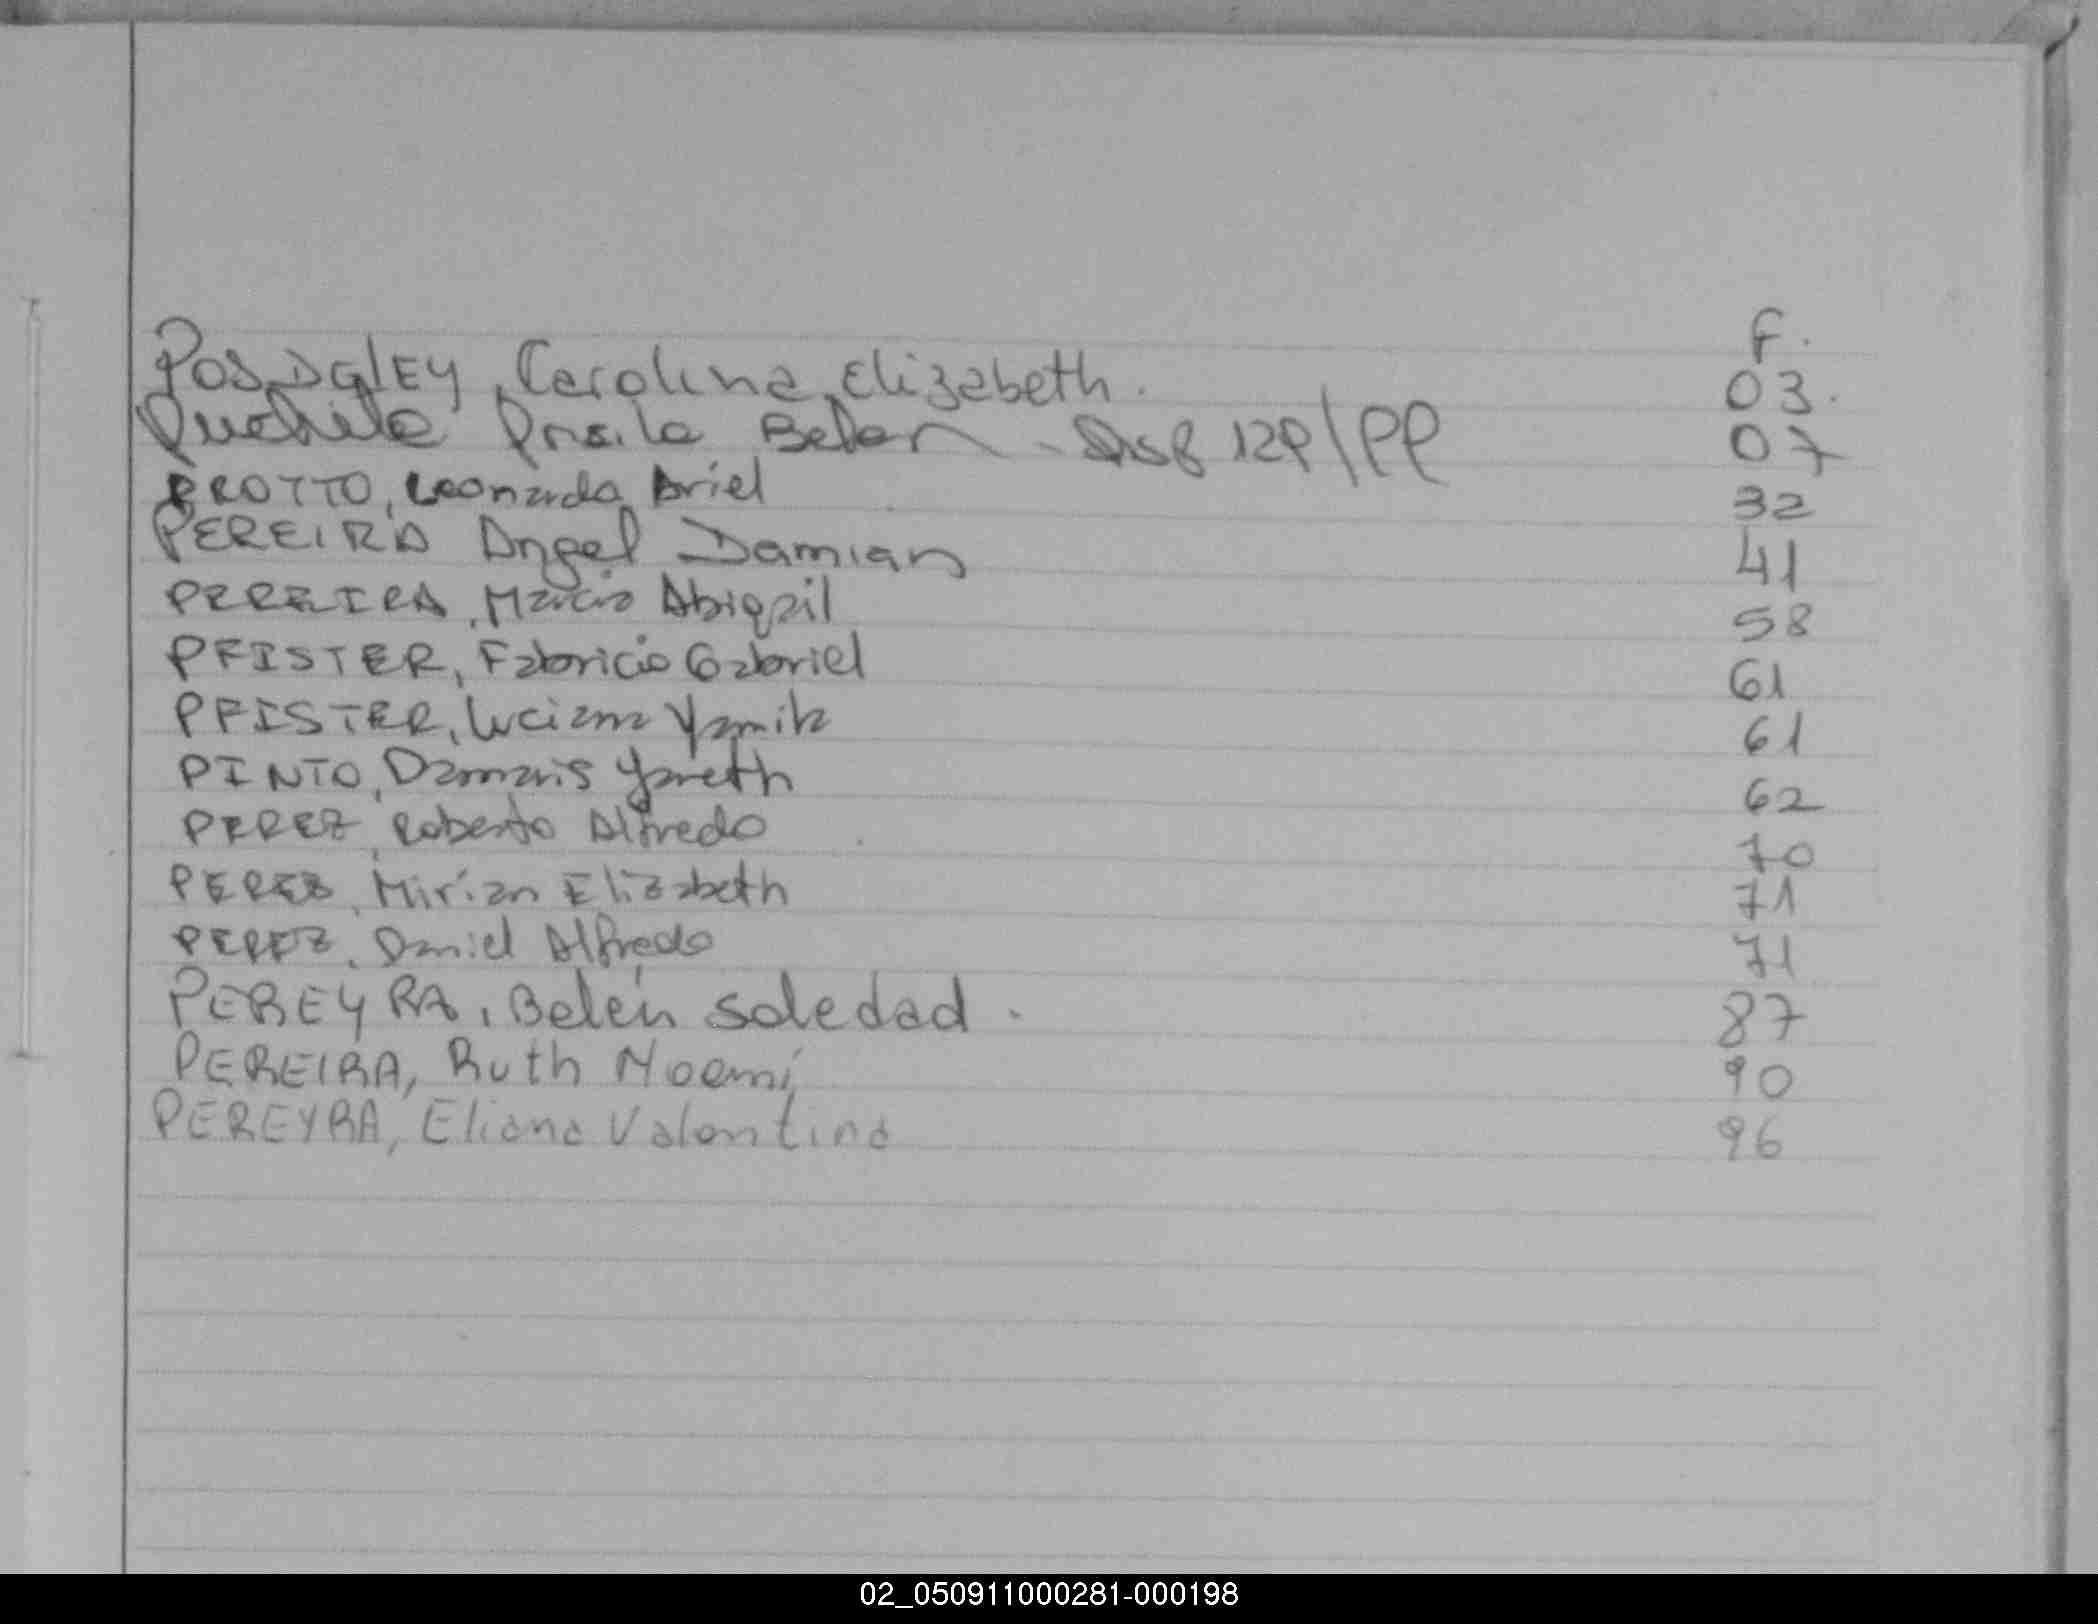 F.
POSDGLEY, Carolina Elizabeth. 03.
Pucheta Prsila Belen - 12P/PP 07
PROTTO, Leonardo Ariel 32
PEREIRA Angel Damian 41
PEREIRA, Marcia Abigail 58
PFISTER, Fabricio Gabriel 61
PFISTER, Luciana Yamila 61
PINTO, Damaris Yareth 62
PEREZ, Roberto Alfredo 70
PEREZ, Mirian Elizabeth 71
PEREZ, Daniel Alfredo 71
PEREYRA, Belén Soledad. 87
PEREIRA, Ruth Noemí 90
PEREYRA, Eliana Valentina 96
02_050911000281-000198